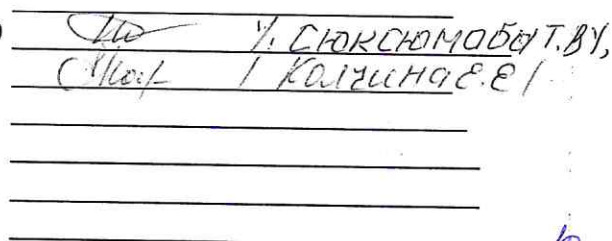 /. Сюксюмова Т.В/,
/ Колчина Е.Е /